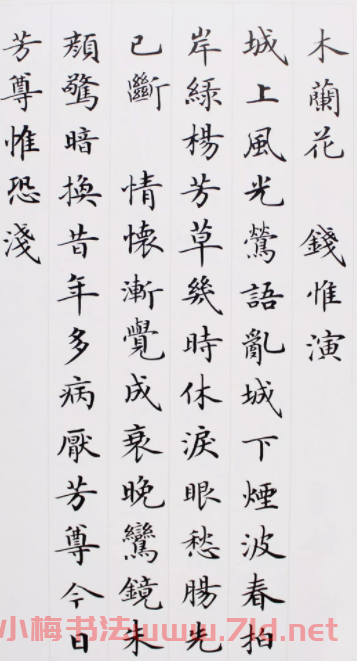 木蘭花　錢惟演
城上風光鶯語亂城下煙波春拍
岸綠楊芳草幾時休淚眼愁腸先
已斷　情懷漸覺成衰晚鸞鏡朱
顏驚暗換昔年多病厭芳尊今日
芳尊惟恐淺
小梅书法www.7ld.net